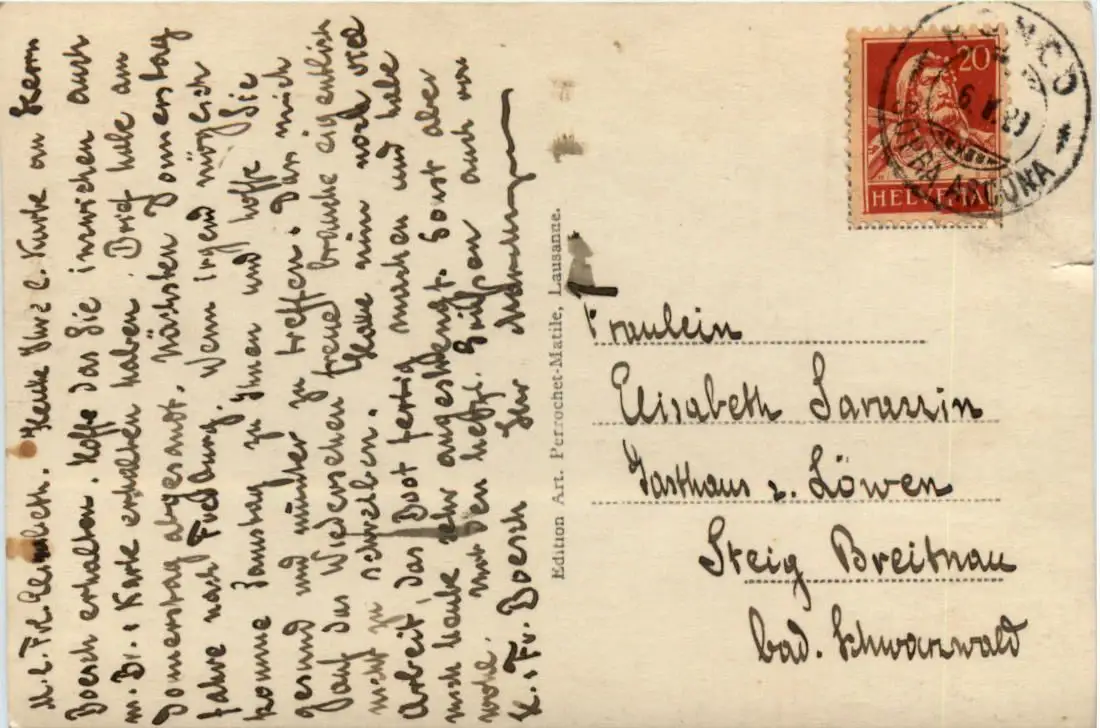 M. l. Frl. Elisabeth. Heute Ihre l. Karte an Herrn
Boesch erhalten. Hoffe das Sie inzwischen auch
m. Br. & Karte erhalten haben. Brief habe am
Donnerstag abgesandt. Nächsten Donnerstag
fahre nach Freiburg. Wenn irgend möglich
komme Samstag zu Ihnen und hoffe Sie
gesund und munter zu treffen. Das mich
auf das Wiedersehen freue brauche eigentlich
nicht zu schreiben. Habe nun noch viel
Arbeit, das Boot fertig machen und habe
mich heute sehr angestrengt. Sonst aber
wohl. Mit den Grüssen auch von
H. & Fr. Boesch Ihr
Edition Art. Perrochet-Matile, Lausanne.
20
HELVETIA
RONCO
SOPRA ASCONA
Fräulein
Elisabeth Sarazin
Gasthaus z. Löwen
Steig Breitnau
bad. Schwarzwald